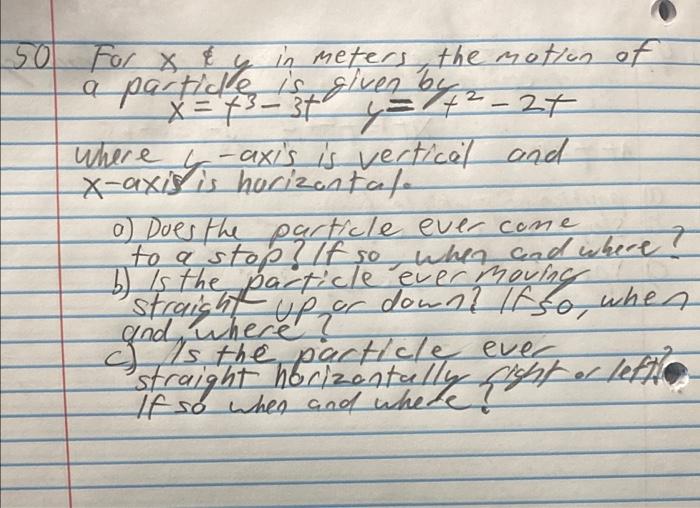 50 For x & y in meters, the motion of
a particle is given by
x = t³ - 3t y = t² - 2t
where y-axis is vertical and
x-axis is horizontal.
a) Does the particle ever come
to a stop? If so, when and where?
b) Is the particle ever moving
straight up or down? If so, when
and where?
c) Is the particle ever
straight horizontally right or left?
If so when and where?